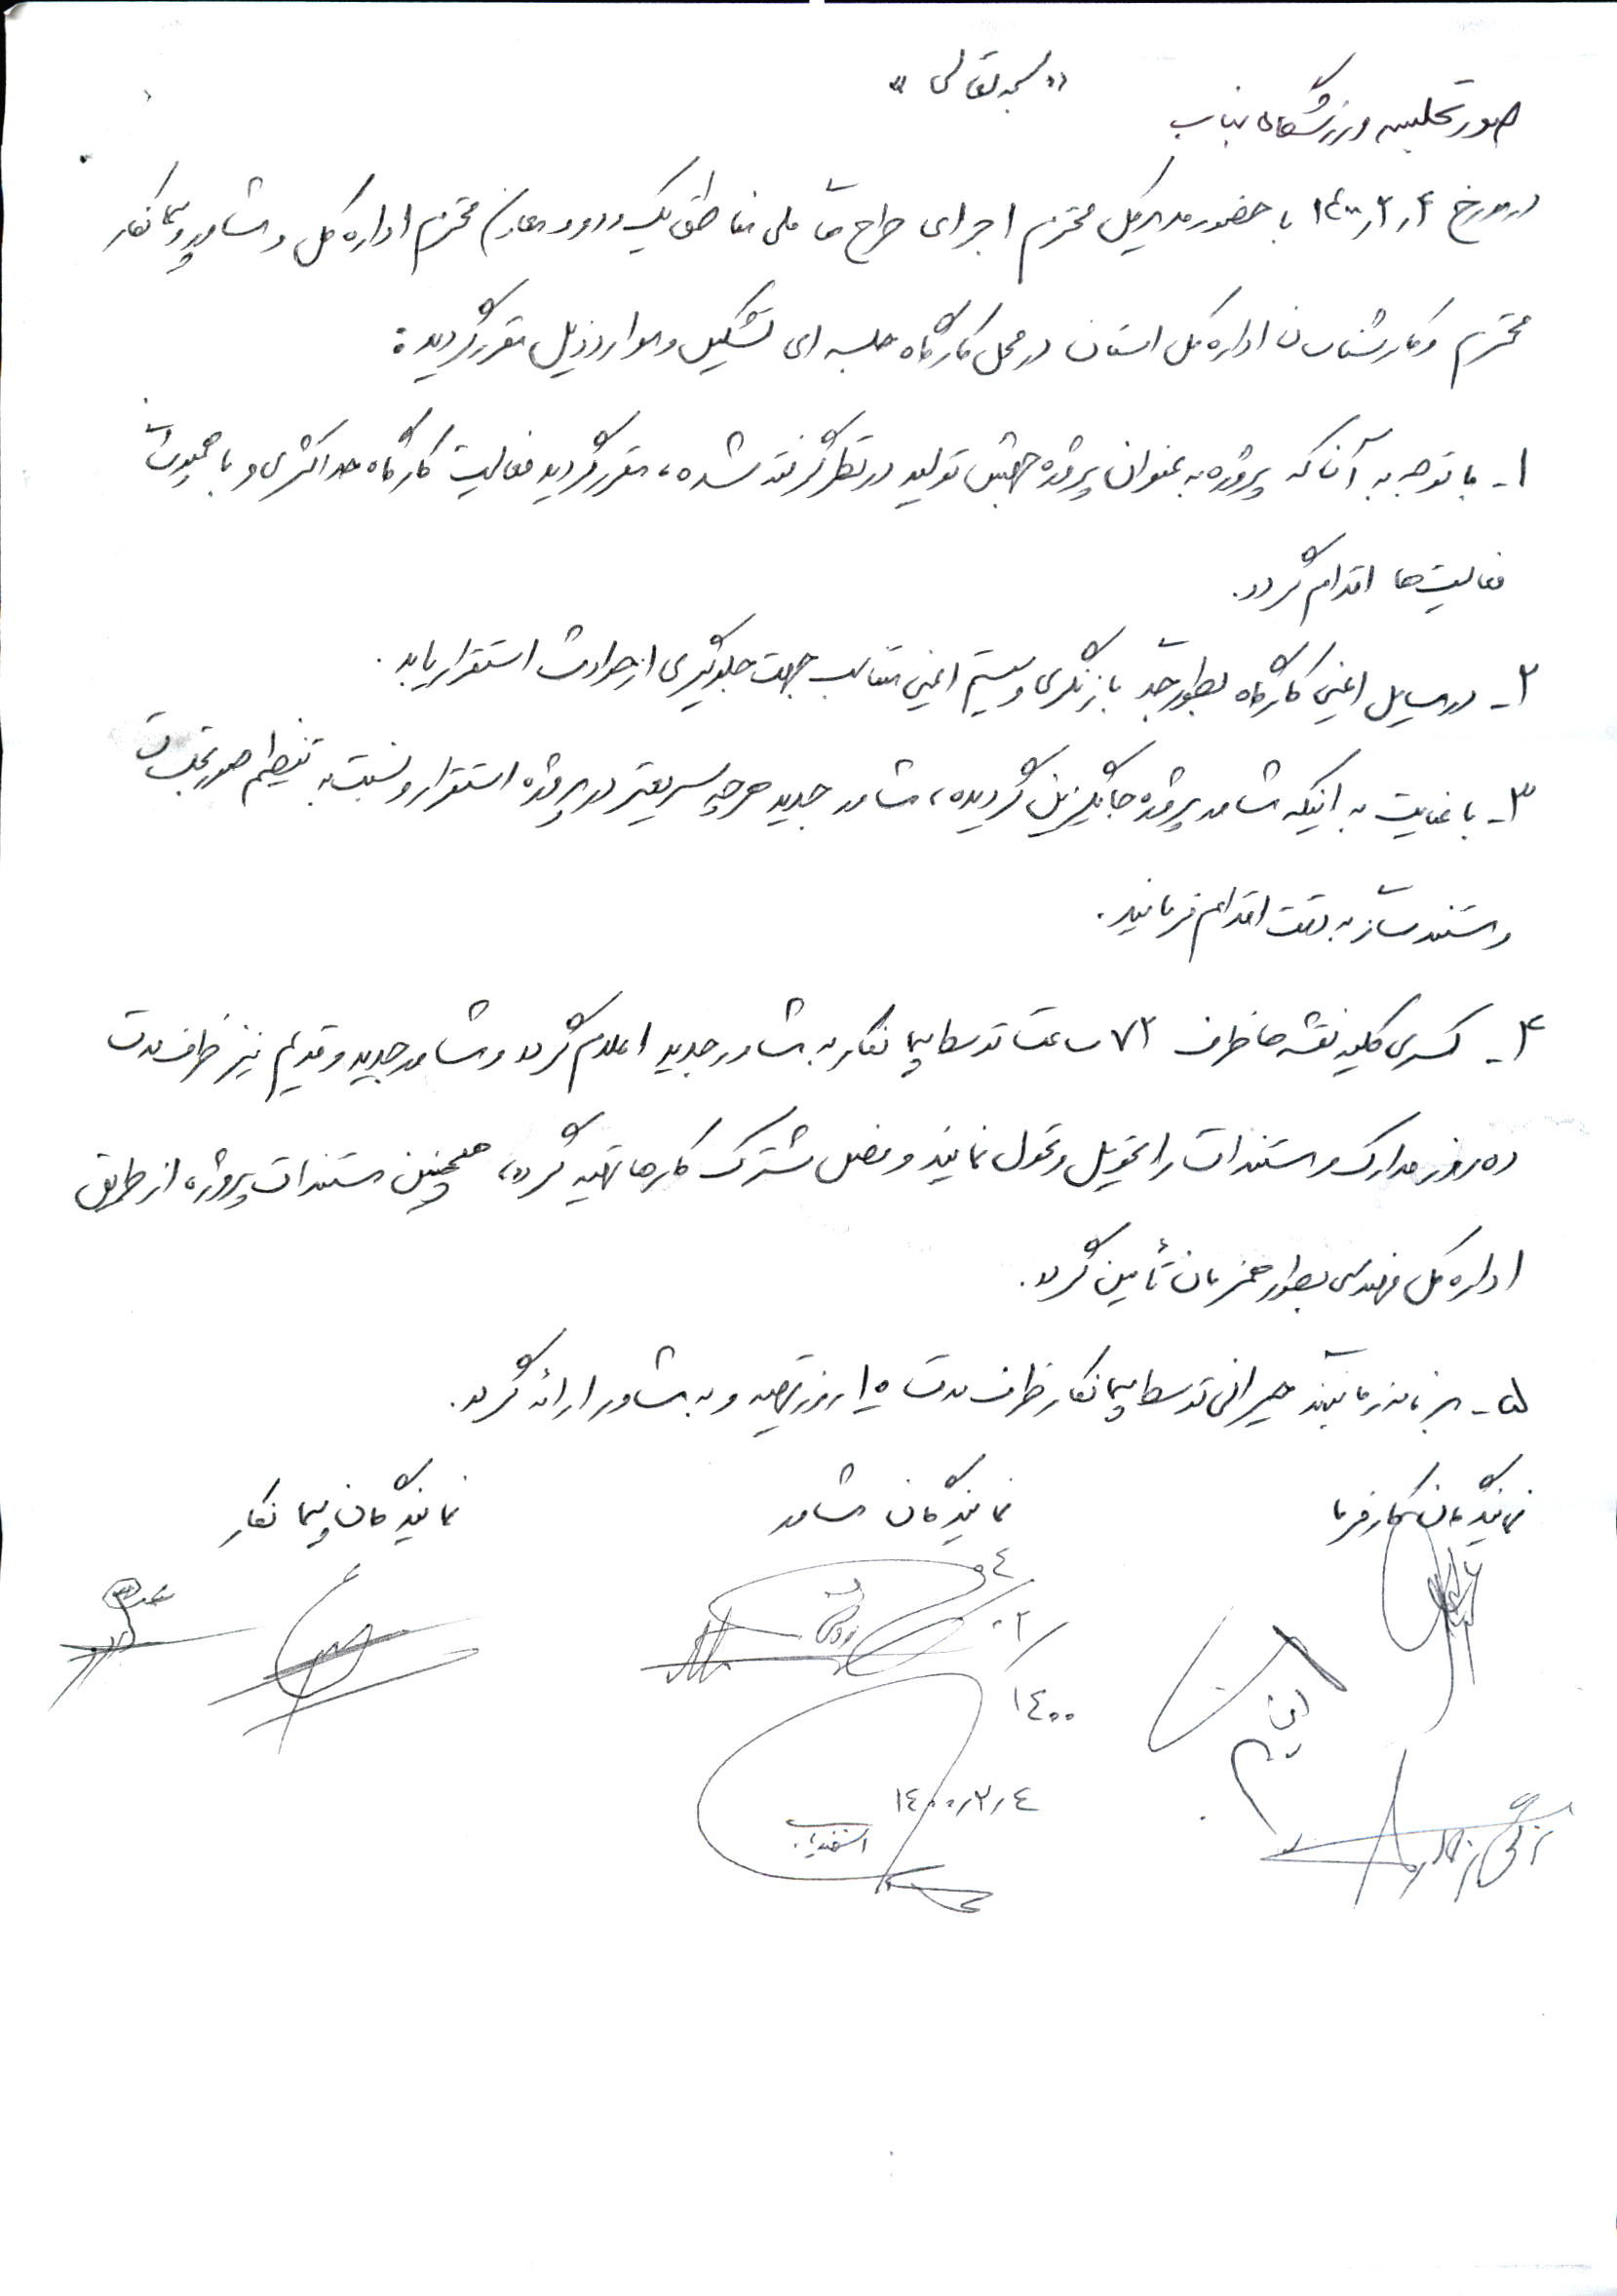 «بسمه تعالی»
صورتجلسه ورزشگاه بناب
در مورخ ۱۴۰۰٫۳٫۴ با حضور مدیرکل محترم اجرای طرح های ملی مناطق یک و دو و معاون محترم اداره کل و مشاور و پیمانکار
محترم و کارشناسان اداره کل استان در محل کارگاه جلسه ای تشکیل و موارد ذیل مقرر گردید:
۱- با توجه به آنکه پروژه به عنوان پروژه جهش تولید در نظر گرفته شده، مقرر گردید فعالیت کارگاه حداکثری و با
فعالیت ها اقدام گردد.
۲- در مسایل ایمنی کارگاه بطور جد بازنگری و سیستم ایمنی مناسب جهت جلوگیری از حوادث استقرار یابد.
۳- با عنایت به اینکه مشاور پروژه جایگزین گردیده، مشاور جدید هرچه سریعتر در پروژه استقرار و نسبت به تنظیم صورتجلسات
و مستندسازی به دقت اقدام فرمایند.
۴- کسری کلیه نقشه ها ظرف ۷۲ ساعت توسط پیمانکار به مشاور جدید اعلام گردد و مشاور جدید و قدیم نیز ظرف مدت
ده روز مدارک و مستندات را تحویل و تحول نمایند و فصل مشترک کارها تهیه گردد، همچنین مستندات پروژه از طریق
اداره کل مهندسی بطور همزمان تأمین گردد.
۵- برنامه زمانبندی جبرانی توسط پیمانکار ظرف مدت ۱۵ روز تهیه و به مشاور ارائه گردد.
نمایندگان کارفرما
نمایندگان مشاور
نمایندگان پیمانکار
۱۴۰۰/۰۳/۰۴
۱۴۰۰٫۳٫۴